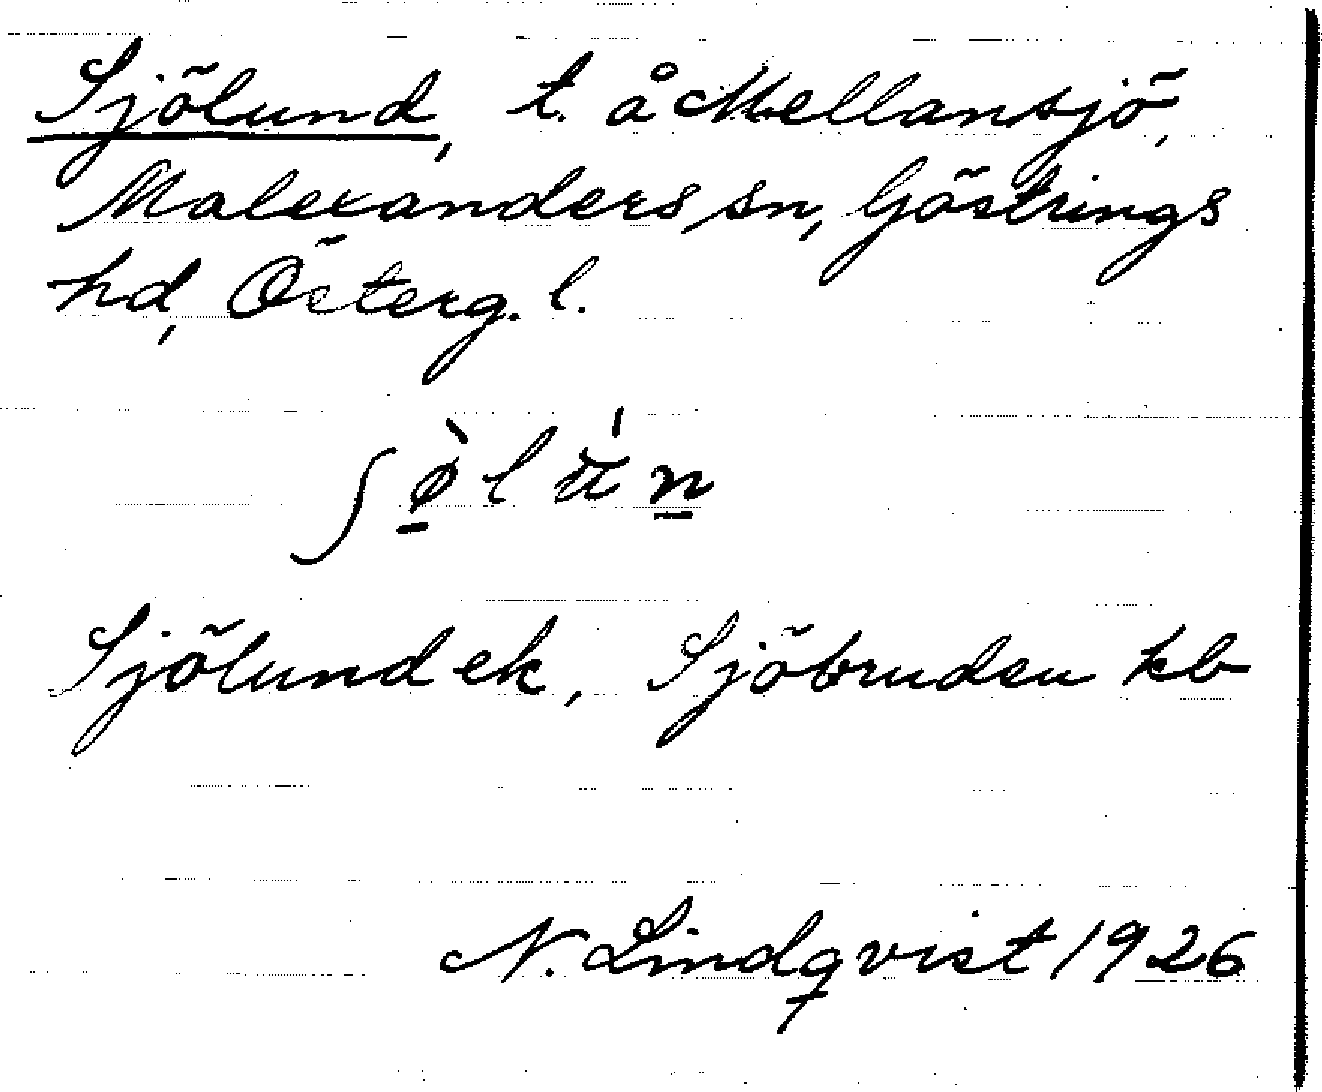 Sjölund, t. å Mellansjö,
Malexanders sn, Göstrings
hd, Österg. l.
ʃø̠̀lún̠
Sjölund ek, Sjöbruden kb
N. Lindqvist 1926